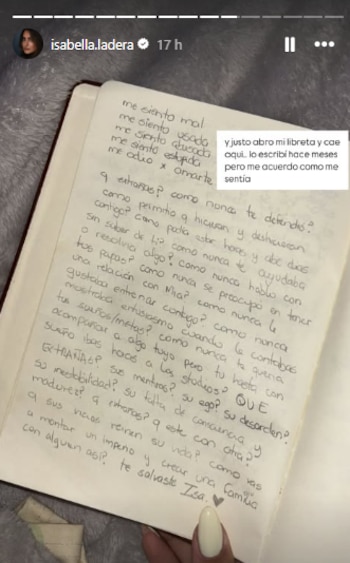 isabella.ladera 17 h
y justo abro mi libreta y cae
aqui.. lo escribí hace meses
pero me acuerdo como me
sentía
me siento mal
me siento usada
me siento
me siento estúpida
me odio x amarte
q extrañas? como nunca te defendió?
como permitió q hicieran y deshicieran
contigo? como podía estar horas y dias
sin saber de ti? como nunca te ayudaba
a resolver algo? como nunca hablo con
tus papas? como nunca se preocupó en tener
una relación con Mia? como nunca le
gustaba entrenar contigo? como nunca
mostraba entusiasmo cuando le contabas
tus sueños/metas? como nunca te quería
acompañar a algo tuyo pero tu hasta con
sueño ibas horas a los studios? QUE
EXTRAÑAS? sus mentiras? su ego? su desorden?
su inestabilidad? su falta de conciencia y
madurez? q extrañas? q este con otra?
q sus vicios reinen su vida? como vas
a montar un imperio y crear una familia
con alguien asi? te salvaste Isa.